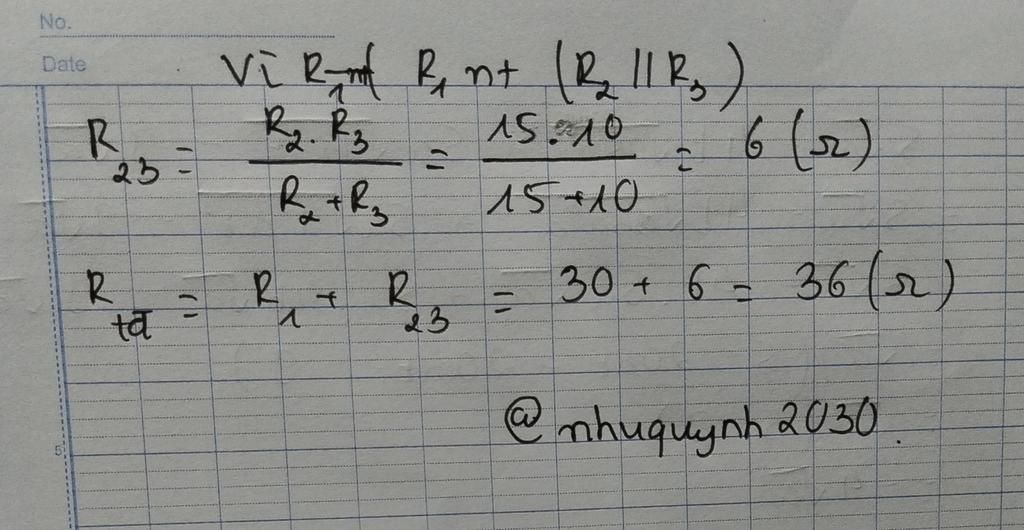 No.
Date
Vì R₁ nt (R₂ // R₃)
R₂₃ = R₂.R₃ / R₂+R₃ = 15.10 / 15+10 = 6 (Ω)
R_tđ = R₁ + R₂₃ = 30 + 6 = 36 (Ω)
@nhuquynh2030.
5